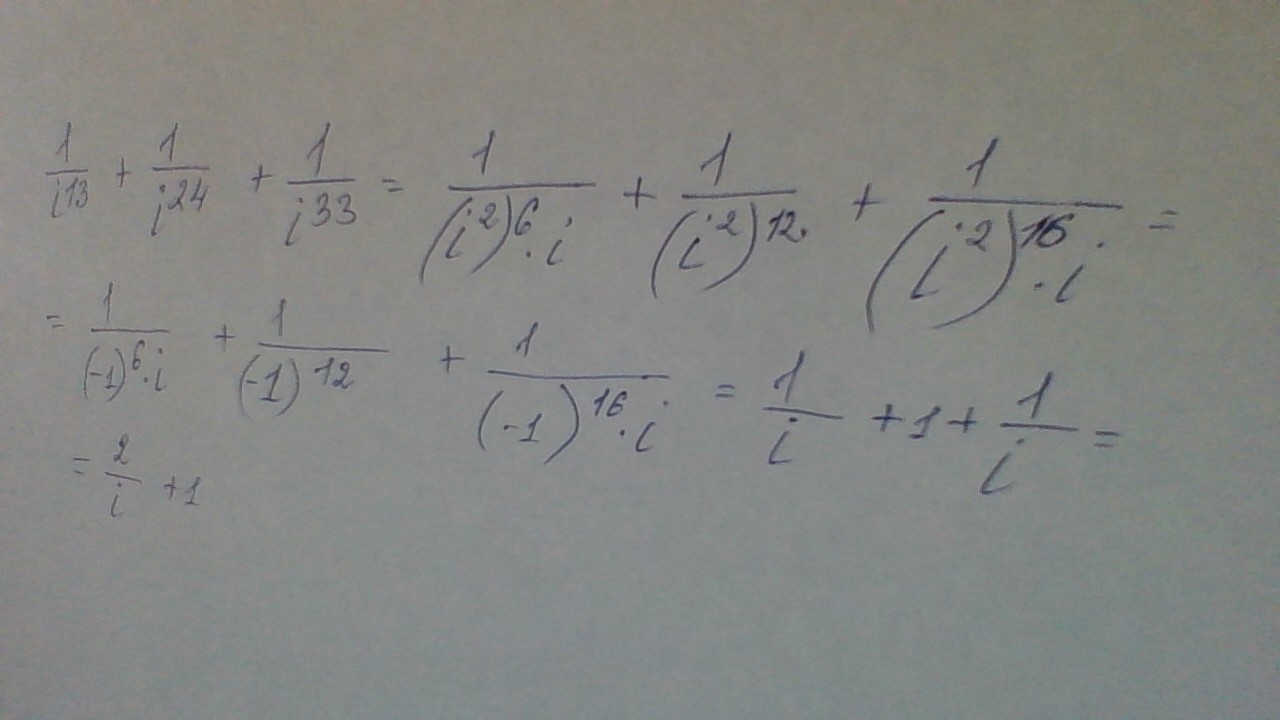 1/i^13 + 1/i^24 + 1/i^33 = 1/((i^2)^6 · i) + 1/(i^2)^12 + 1/((i^2)^16 · i) =
= 1/((-1)^6 · i) + 1/(-1)^12 + 1/((-1)^16 · i) = 1/i + 1 + 1/i =
= 2/i + 1